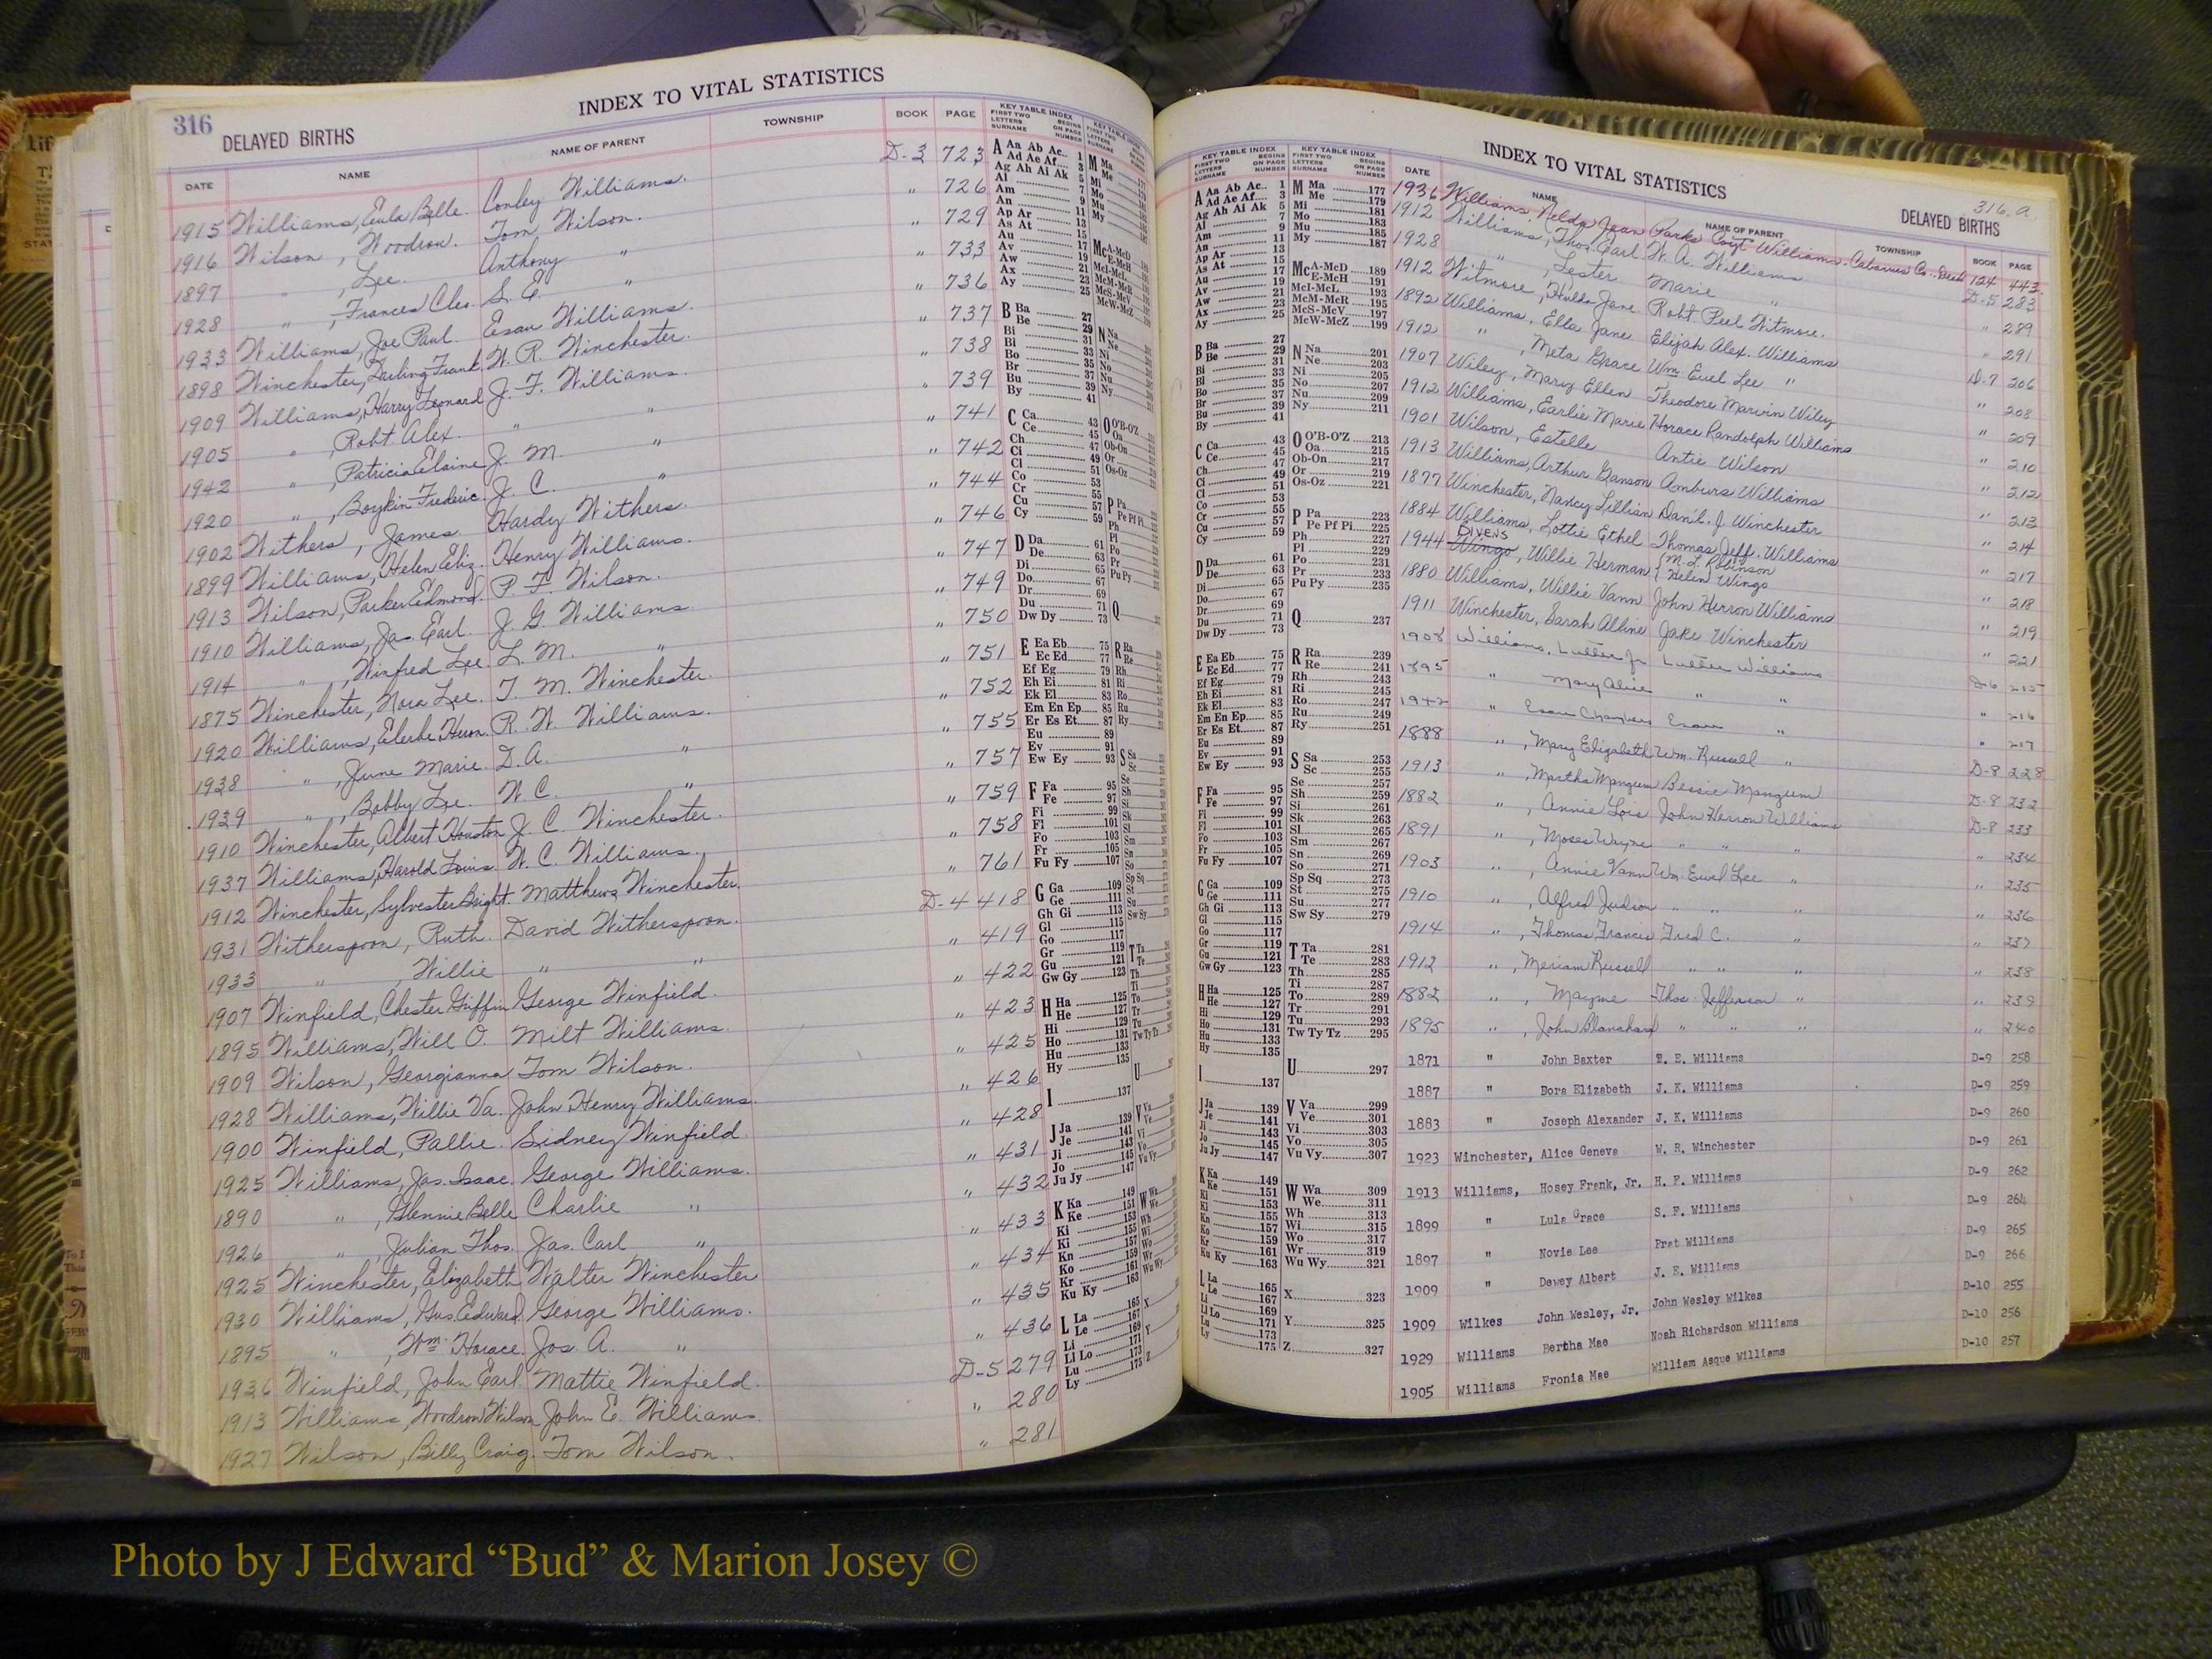 316
INDEX TO VITAL STATISTICS
DELAYED BIRTHS
DATE NAME NAME OF PARENT TOWNSHIP BOOK PAGE
1915 Williams, Eula Belle. Conley Williams. D-3 723
1916 Wilson, Woodrow. Tom Wilson. " 726
1897 " , Lee. Anthony " " 729
1928 " , Frances Cleo. S. E. " " 733
1933 Williams, Joe Paul. Esau Williams. " 736
1898 Winchester, Darling Frank. W. R. Winchester. " 737
1909 Williams, Harry Leonard J. F. Williams. " 738
1905 " , Robt. Alex. " " " 739
1942 " , Patricia Elaine J. M. " " 741
1920 " , Boykin Frederic. J. C. " " 742
1902 Withers, James. Hardy Withers. " 744
1899 Williams, Helen Eliz. Henry Williams. " 746
1913 Wilson, Parker Edmond. P. F. Wilson. " 747
1910 Williams, Jas. Earl. J. G Williams " 749
1914 " , Winfred Lee. L. M. " " 750
1875 Winchester, Nora Lee. T. M. Winchester. " 751
1920 Williams, R. W. Williams. " 752
1938 " , June Marie. D. A. " " 755
1939 " , Bobby Lee. W. C. " " 757
1910 Winchester, Albert Houston J. C. Winchester. " 759
1937 Williams, Harold Louis. W. C. Williams. " 758
1912 Winchester, Sylvester Bright. Matthews Winchester. " 761
1931 Witherspoon, Ruth. David Witherspoon. D-4 418
1933 " , Willie " " " 419
1907 Winfield, Chester Griffin George Winfield. " 422
1895 Williams, Will O. Milt Williams. " 423
1909 Wilson, Georgianna Tom Wilson. " 425
1928 Williams, Willie Va. John Henry Williams. " 426
1900 Winfield, Pallie. Sidney Winfield. " 428
1925 Williams, Jas. Isaac. George Williams. " 431
1890 " , Glennie Belle Charlie " " 432
1926 " , Julian Thos. Jas. Carl " " 433
1925 Winchester, Elizabeth Walter Winchester " 434
1930 Williams, Gus. Edward. George Williams. " 435
1895 " , Wm. Horace. Jos. A. " " 436
1936 Winfield, John Earl. Mattie Winfield. D-5 279
1913 Williams, Woodrow Wilson John E. Williams. " 280
1927 Wilson, Billy Craig. Tom Wilson. " 281
INDEX TO VITAL STATISTICS
316. a.
DELAYED BIRTHS
KEY TABLE INDEX KEY TABLE INDEX
FIRST TWO LETTERS SURNAME BEGINS ON PAGE NUMBER
DATE NAME NAME OF PARENT TOWNSHIP BOOK PAGE
A Aa Ab Ac.. 1
Ad Ae Af.... 3
Ag Ah Ai Ak 5
Al 7
Am 9
An 11
Ap Ar 13
As At 15
Au 17
Av 19
Aw 21
Ax 23
Ay 25
B Ba 27
Be 29
Bi 31
Bl 33
Bo 35
Br 37
Bu 39
By 41
C Ca 43
Ce 45
Ch 47
Ci 49
Cl 51
Co 53
Cr 55
Cu 57
Cy 59
D Da 61
De 63
Di 65
Do 67
Dr 69
Du 71
Dw Dy 73
E Ea Eb 75
Ec Ed 77
Ef Eg 79
Eh Ei 81
Ek El 83
Em En Ep 85
Er Es Et 87
Eu 89
Ev 91
Ew Ey 93
F Fa 95
Fe 97
Fi 99
Fl 101
Fo 103
Fr 105
Fu Fy 107
G Ga 109
Ge 111
Gh Gi 113
Gl 115
Go 117
Gr 119
Gu 121
Gw Gy 123
H Ha 125
He 127
Hi 129
Ho 131
Hu 133
Hy 135
I 137
J Ja 139
Je 141
Ji 143
Jo 145
Ju Jy 147
K Ka 149
Ke 151
Ki 153
Kl 155
Kn 157
Ko 159
Kr 161
Ku Ky 163
L La 165
Le 167
Li 169
Ll Lo 171
Lu 173
Ly 175
M Ma 177
Me 179
Mi 181
Mo 183
Mu 185
My 187
Mc A-McD 189
E-McH 191
McI-McL 193
McM-McR 195
McS-McV 197
McW-McZ 199
N Na 201
Ne 203
Ni 205
No 207
Nu 209
Ny 211
O O'B-O'Z 213
Oa 215
Ob-On 217
Or 219
Os-Oz 221
P Pa 223
Pe Pf Pi 225
Ph 227
Pl 229
Po 231
Pr 233
Pu Py 235
Q 237
R Ra 239
Re 241
Rh 243
Ri 245
Ro 247
Ru 249
Ry 251
S Sa 253
Sc 255
Se 257
Sh 259
Si 261
Sk 263
Sl 265
Sm 267
Sn 269
So 271
Sp Sq 273
St 275
Su 277
Sw Sy 279
T Ta 281
Te 283
Th 285
Ti 287
To 289
Tr 291
Tu 293
Tw Ty Tz 295
U 297
V Va 299
Ve 301
Vi 303
Vo 305
Vu Vy 307
W Wa 309
We 311
Wh 313
Wi 315
Wo 317
Wr 319
Wu Wy 321
X 323
Y 325
Z 327
1936 Williams, Nelda Jean Parks Williams. Cabarrus Co. 124 443
1912 Williams, Thos. Earl. W. A. Williams D-5 283
1928 " , Lester Marie " " 289
1912 Witmore, Hulda Jane Robt. Peel Witmore. " 291
1892 Williams, Ella Jane Elijah Alex. Williams D-7 206
1912 " , Meta Grace Wm. Euel Lee " " 208
1907 Wiley, Mary Ellen Theodore Marvin Wiley " 209
1912 Williams, Earlie Marie Horace Randolph Williams " 210
1901 Wilson, Estelle Antie Wilson " 212
1913 Williams, Arthur Ganson Amburs Williams " 213
1877 Winchester, Nancy Lillian Dan'l. J. Winchester " 214
1884 Williams, Lottie Ethel Thomas Jeff. Williams " 217
DIVENS
1944 Wingo, Willie Herman { M. L. Robinson Helen Wingo " 218
1880 Williams, Willie Vann John Herron Williams " 219
1911 Winchester, Sarah Alline Jake Winchester " 221
1908 Williams, Luther Jr Luther Williams D-6 215
1895 " Mary Alice " " " 216
1942 " Esau Chambers Esau " " 217
1888 " , Mary Elizabeth Wm. Russell " D-8 228
1913 " , Martha Mangum Bessie Mangum D-8 232
1882 " , Annie Lois John Herron Williams D-8 233
1891 " , Moses Wayne " " " " 234
1903 " , Annie Vann Wm. Ewel Lee " " 235
1910 " , Alfred Judson " " " " 236
1914 " , Thomas Frances Fred C. " " 237
1912 " , Meriam Russell " " " 238
1882 " , Mayme Thos. Jefferson " " 239
1895 " , John Blanchard " " " " 240
1871 " John Baxter T. E. Williams D-9 258
1887 " Dora Elizabeth J. K. Williams D-9 259
1883 " Joseph Alexander J. K. Williams D-9 260
1923 Winchester, Alice Geneva W. R. Winchester D-9 261
1913 Williams, Hosey Frank, Jr. H. F. Williams D-9 262
1899 " Lula Grace S. F. Williams D-9 264
1897 " Novie Lee Prat Williams D-9 265
1909 " Dewey Albert J. E. Williams D-9 266
1909 Wilkes John Wesley, Jr. John Wesley Wilkes D-10 255
1929 Williams Bertha Mae Noah Richardson Williams D-10 256
1905 Williams Fronia Mae William Asque Williams D-10 257
Photo by J Edward “Bud” & Marion Josey ©